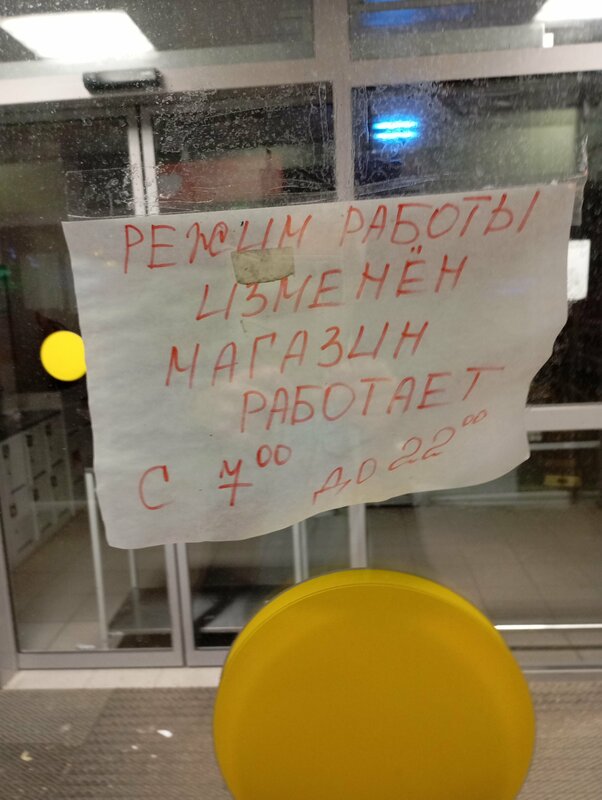 РЕЖИМ РАБОТЫ
ИЗМЕНЁН
МАГАЗИН
РАБОТАЕТ
С 7⁰⁰ ДО 22⁰⁰